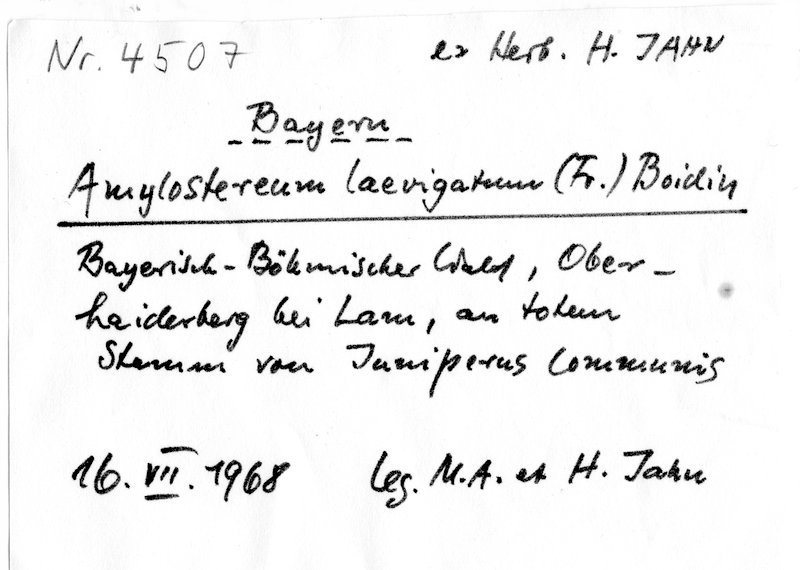 Nr. 4507 ex Herb. H. JAHN
Bayern
Amylostereum laevigatum (Fr.) Boidin
Bayerisch-Böhmischer Wald, Ober-
haiderberg bei Lam, an totem
Stamm von Juniperus communis
16. VII. 1968 leg. M.A. et H. Jahn